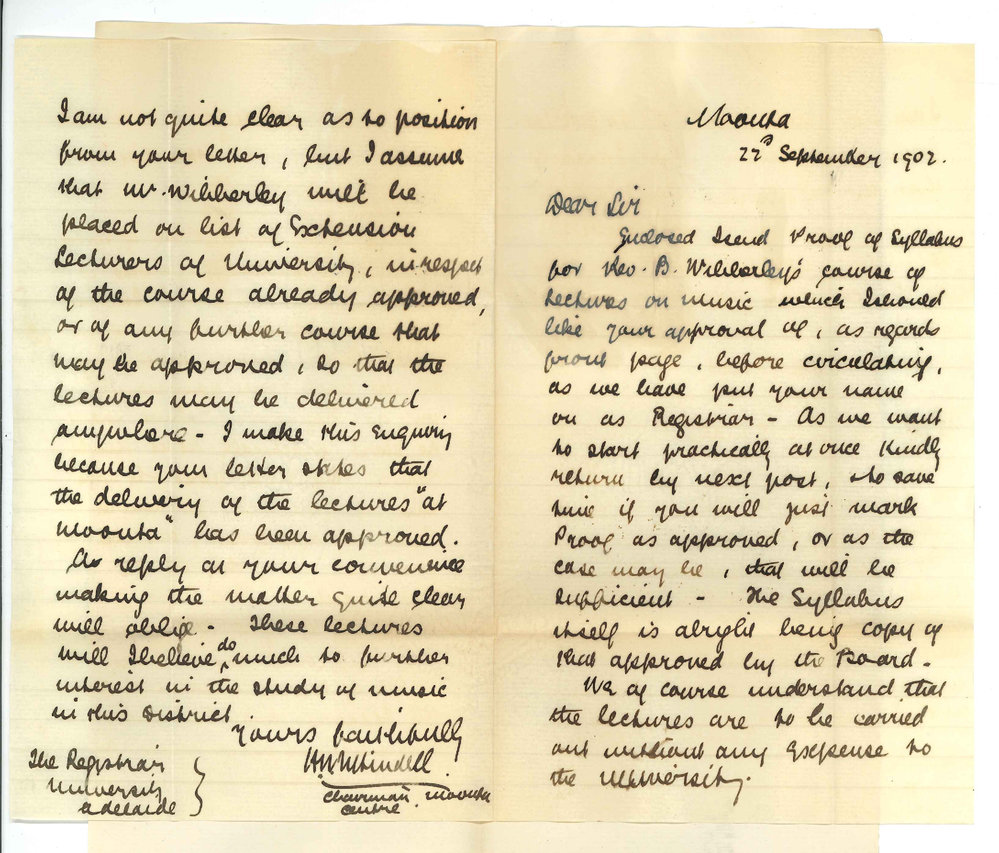 Moonta
22nd September 1902.
Dear Sir
Enclosed I send Proof of Syllabus
for Rev. B. Wibberley's course of
Lectures on music which I should
like your approval of, as regards
front page, before circulating,
as we have put your name
on as Registrar - As we want
to start practically at once Kindly
return by next post, to save
time if you will just mark
Proof as approved, or as the
case may be, that will be
sufficient - The Syllabus
itself is alright being copy of
that approved by the Board -
We of course understand that
the lectures are to be carried
out without any Expense to
the University.
I am not quite clear as to position
from your letter, but I assume
that Mr. Wibberley will be
placed on list of Extension
Lecturers of University, in respect
of the course already approved,
or of any further course that
may be approved, so that the
lectures may be delivered
anywhere - I make this Enquiry
because your letter states that
the delivery of the lectures "at
Moonta" has been approved.
A reply at your convenience
making the matter quite clear
will oblige - These lectures
will I believe do much to further
interest in the study of music
in this District
Yours faithfully
Chairman, Moonta
Centre
The Registrar
University
Adelaide